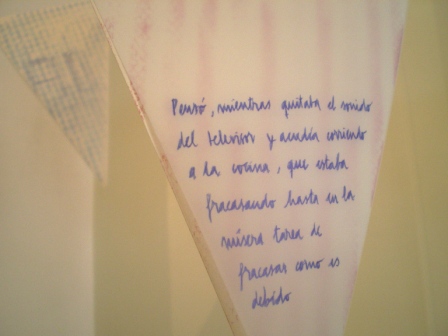 Pensó, mientras quitaba el sonido
del televisor y acudía corriendo
a la cocina, que estaba
fracasando hasta en la
mísera tarea de
fracasar como es
debido